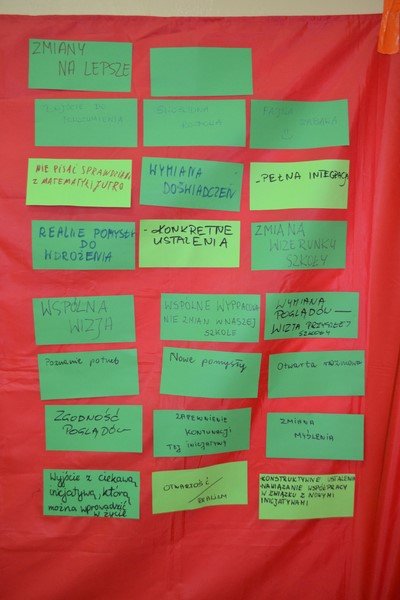 ZMIANY
NA LEPSZE
DOJŚCIE DO
POROZUMIENIA
SWOBODNA
ROZMOWA
FAJNA
ZABAWA
NIE PISAĆ SPRAWDZIANU
Z MATEMATYKI JUTRO
WYMIANA
DOŚWIADCZEŃ
-PEŁNA INTEGRACJA
REALNE POMYSŁY
DO
WDROŻENIA
-KONKRETNE
USTALENIA
ZMIANA
WIZERUNKU
SZKOŁY
WSPÓLNA
WIZJA
WSPÓLNE WYPRACOWA
NIE ZMIAN W NASZEJ
SZKOLE
WYMIANA
POGLĄDÓW—
WIZJA PRZYSZŁEJ
SZKOŁY
Poznanie potrzeb
Nowe pomysły
Otwarta rozmowa
ZGODNOŚĆ
POGLĄDÓW
ZAPEWNIENIE
KONTYNUACJI
TEJ INICJATYWY
ZMIANA
MYŚLENIA
Wyjście z ciekawą
inicjatywą, którą
można wprowadzić
w życie
OTWARTOŚĆ/
REALIZM
KONSTRUKTYWNE USTALENIA
NAWIĄZANIE WSPÓŁPRACY
W ZWIĄZKU Z NOWYMI
INICJATYWAMI